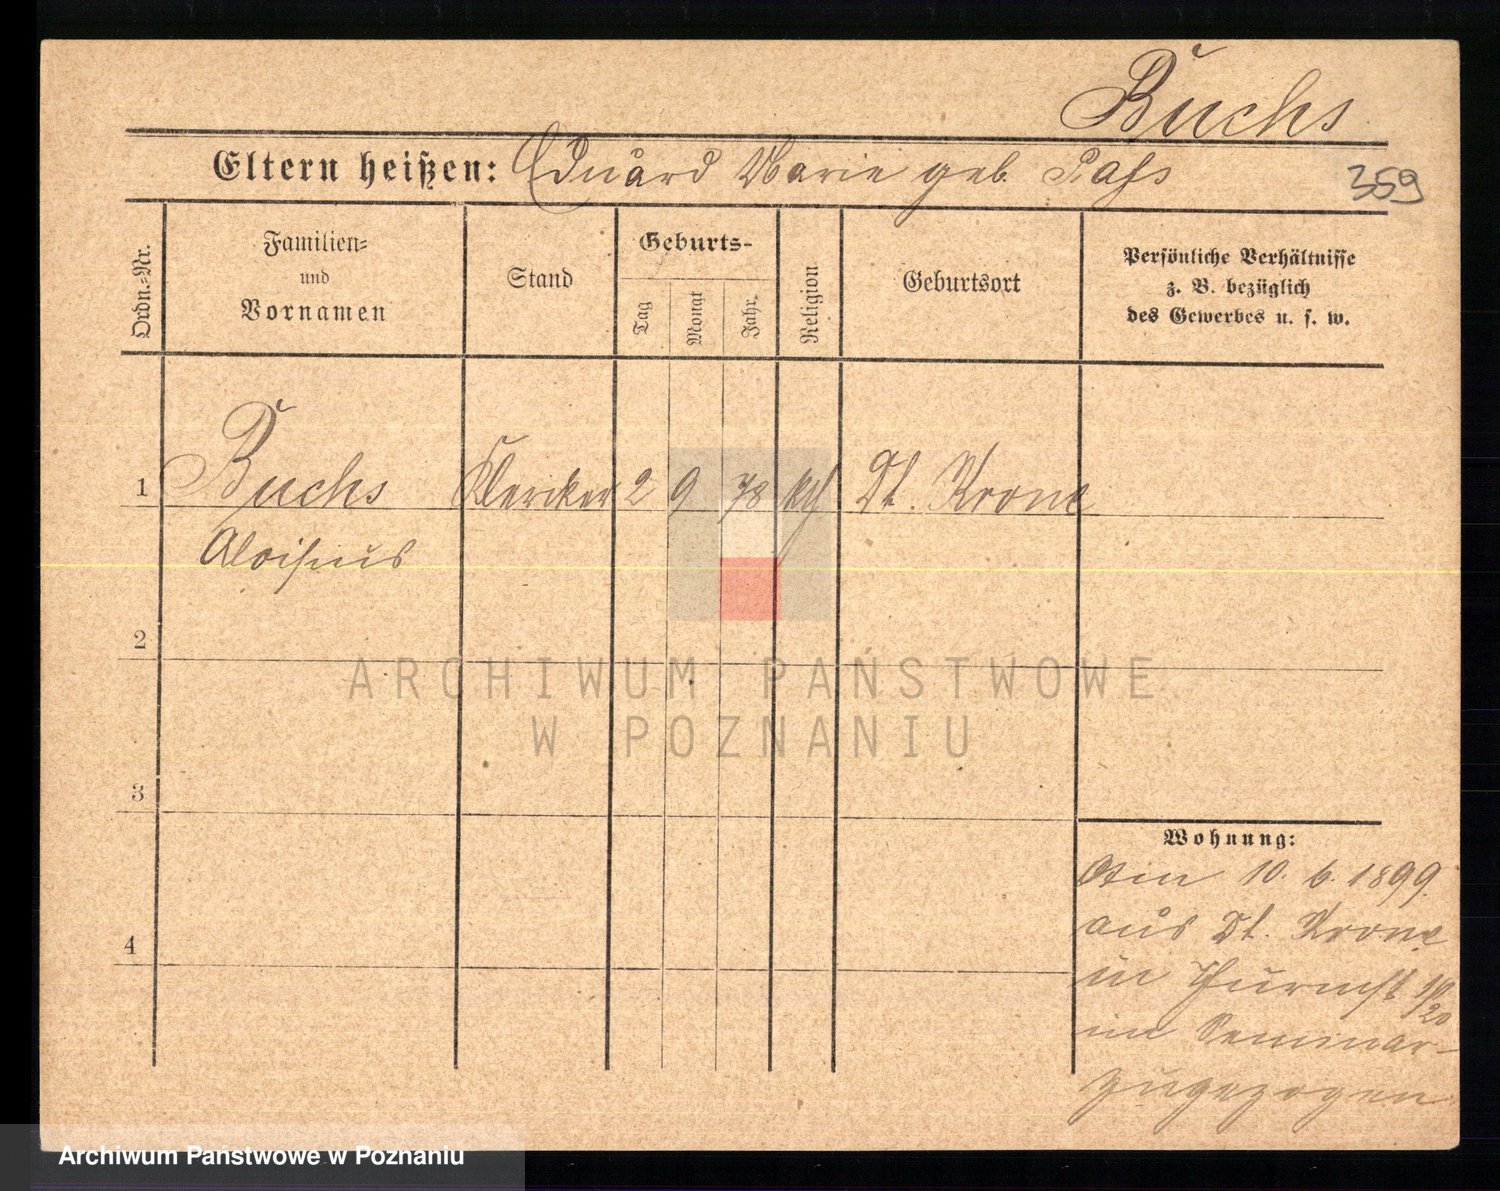 Buchs
Eltern heißen: Eduard Marie geb. Pafs
359
Ordn.-Nr.
Familien-
und
Vornamen
Stand
Geburts-
Tag
Monat
Jahr.
Religion
Geburtsort
Persönliche Verhältnisse
z. B. bezüglich
des Gewerbes u. s. w.
1 Buchs Kleriker 2 9 78 kth Dt. Krone
Aloisius
2
ARCHIWUM PAŃSTWOWE
W POZNANIU
3
4
Wohnung:
10. 6. 1899.
aus Dt. Krone
in Thurmst 19/20
im Seminar
zugezogen
Archiwum Państwowe w Poznaniu